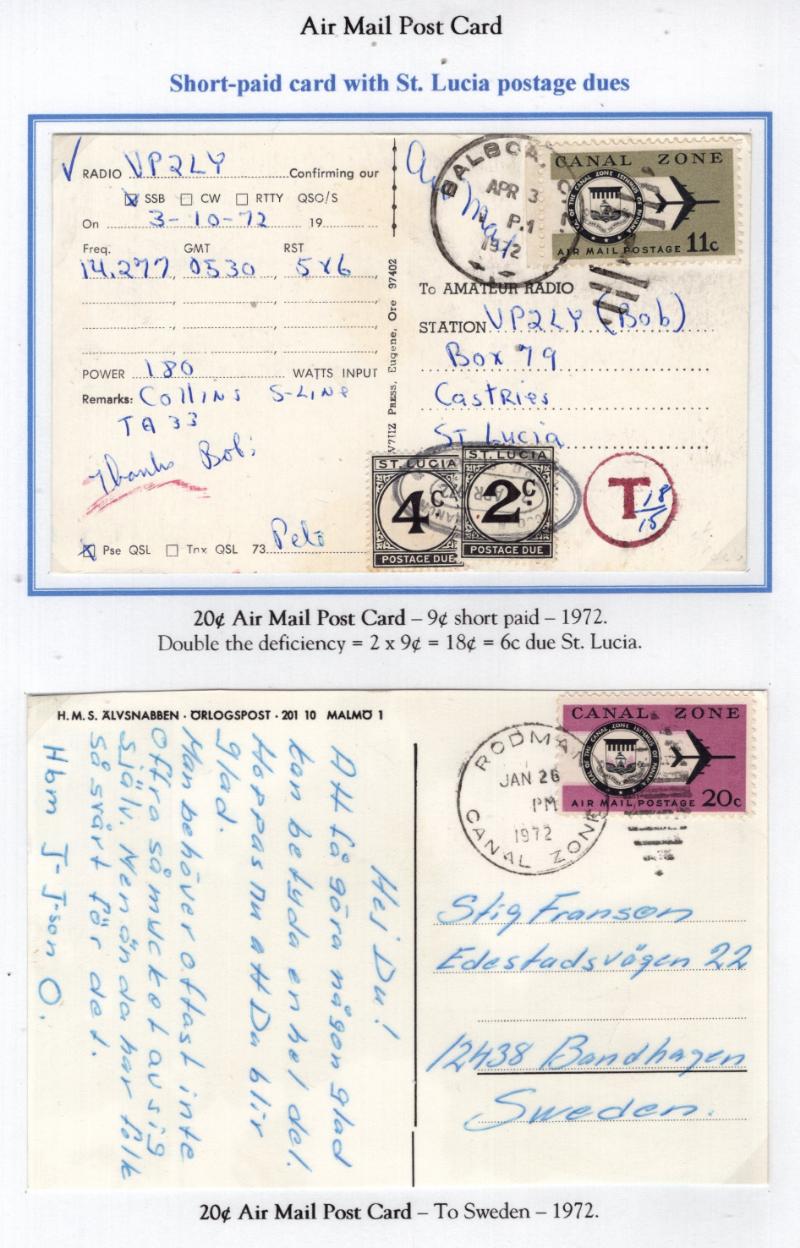 Air Mail Post Card
Short-paid card with St. Lucia postage dues
RADIO VP2LY Confirming our
SSB CW RTTY QSO/S
On 3-10-72 19
Freq. GMT RST
14.277 0530 5x6
POWER 180 WATTS INPUT
Remarks: Collins S-Line
TA 33
Thanks Bob;
Pse QSL Tnx QSL 73 Pete
W7IIZ PRESS, Eugene, Ore 97402
Air Mail
BALBOA, C.Z.
APR 3
P.M
1972
CANAL ZONE
SEAL OF THE CANAL ZONE ISTHMUS OF PANAMA
AIR MAIL POSTAGE 11c
To AMATEUR RADIO
STATION VP2LY (Bob)
Box 79
Castries
St Lucia
ST. LUCIA
4c.
POSTAGE DUE
ST. LUCIA
2c.
POSTAGE DUE
T 18/15
20¢ Air Mail Post Card – 9¢ short paid – 1972.
Double the deficiency = 2 x 9¢ = 18¢ = 6c due St. Lucia.
H.M.S. ÄLVSNABBEN · ÖRLOGSPOST · 201 10 MALMÖ 1
Hej Du!
Att få göra någon glad
kan betyda en hel del.
Hoppas nu att Du blir
glad.
Man behöver oftast inte
offra så mycket av sig
själv. Men ändå har folk
så svårt för det.
Hbm J-J-son O.
RODMAN
JAN 26
PM
1972
CANAL ZONE
CANAL ZONE
SEAL OF THE CANAL ZONE ISTHMUS OF PANAMA
AIR MAIL POSTAGE 20c
Stig Franson
Edestadsvägen 22
12438 Bandhagen
Sweden.
20¢ Air Mail Post Card – To Sweden – 1972.